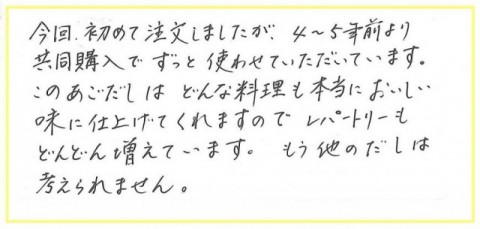 今回、初めて注文しましたが、4〜5年前より
共同購入でずっと使わせていただいています。
このあごだしは どんな料理も本当においしい
味に仕上げてくれますので レパートリーも
どんどん増えています。 もう他のだしは
考えられません。